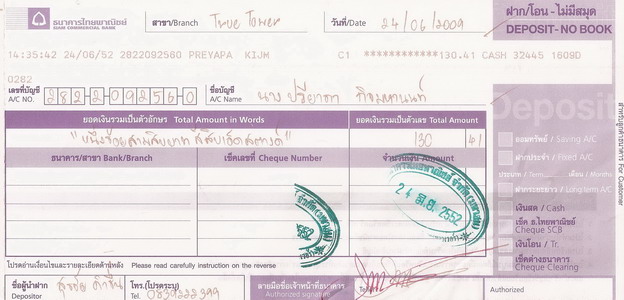 ธนาคารไทยพาณิชย์
SIAM COMMERCIAL BANK
สาขา/Branch True Tower
วันที่/Date 24/06/2009
ฝาก/โอน - ไม่มีสมุด
DEPOSIT- NO BOOK
14:35:42 24/06/52 2822092560 PREYAPA KIJM C1 ************130.41 CASH 32445 1609D
0282
เลขที่บัญชี 2822092560
A/C NO.
ชื่อบัญชี
A/C Name
นาง
Deposit
ยอดเงินรวมเป็นตัวอักษร Total Amount in Words
ยอดเงินรวมเป็นตัวเลข Total Amount
"หนึ่งร้อยสามสิบบาท สี่สิบเอ็ดสตางค์"
130 41
ธนาคาร/สาขา Bank/Branch
เช็คเลขที่ Cheque Number
จำนวนเงิน Amount
ออมทรัพย์ / Saving A/C
ฝากประจำ / Fixed A/C
ประเภท / Term เดือน / Months
ฝากระยะยาว / Long term A/C
เงินสด / Cash
เช็ค ธ.ไทยพาณิชย์
Cheque SCB
เงินโอน / Tr.
เช็คต่างธนาคาร
Cheque Clearing
สำหรับลูกค้าธนาคาร For Customer
24 มิ.ย. 2552
2552
โปรดอ่านเงื่อนไขและรายละเอียดด้านหลัง Please read carefully instruction on the reverse
ชื่อผู้นำฝาก
Depositor
โทร.(โปรดระบุ)
Tel. 0839222399
ลายมือชื่อเจ้าหน้าที่ธนาคาร
Authorized signature
Authorized